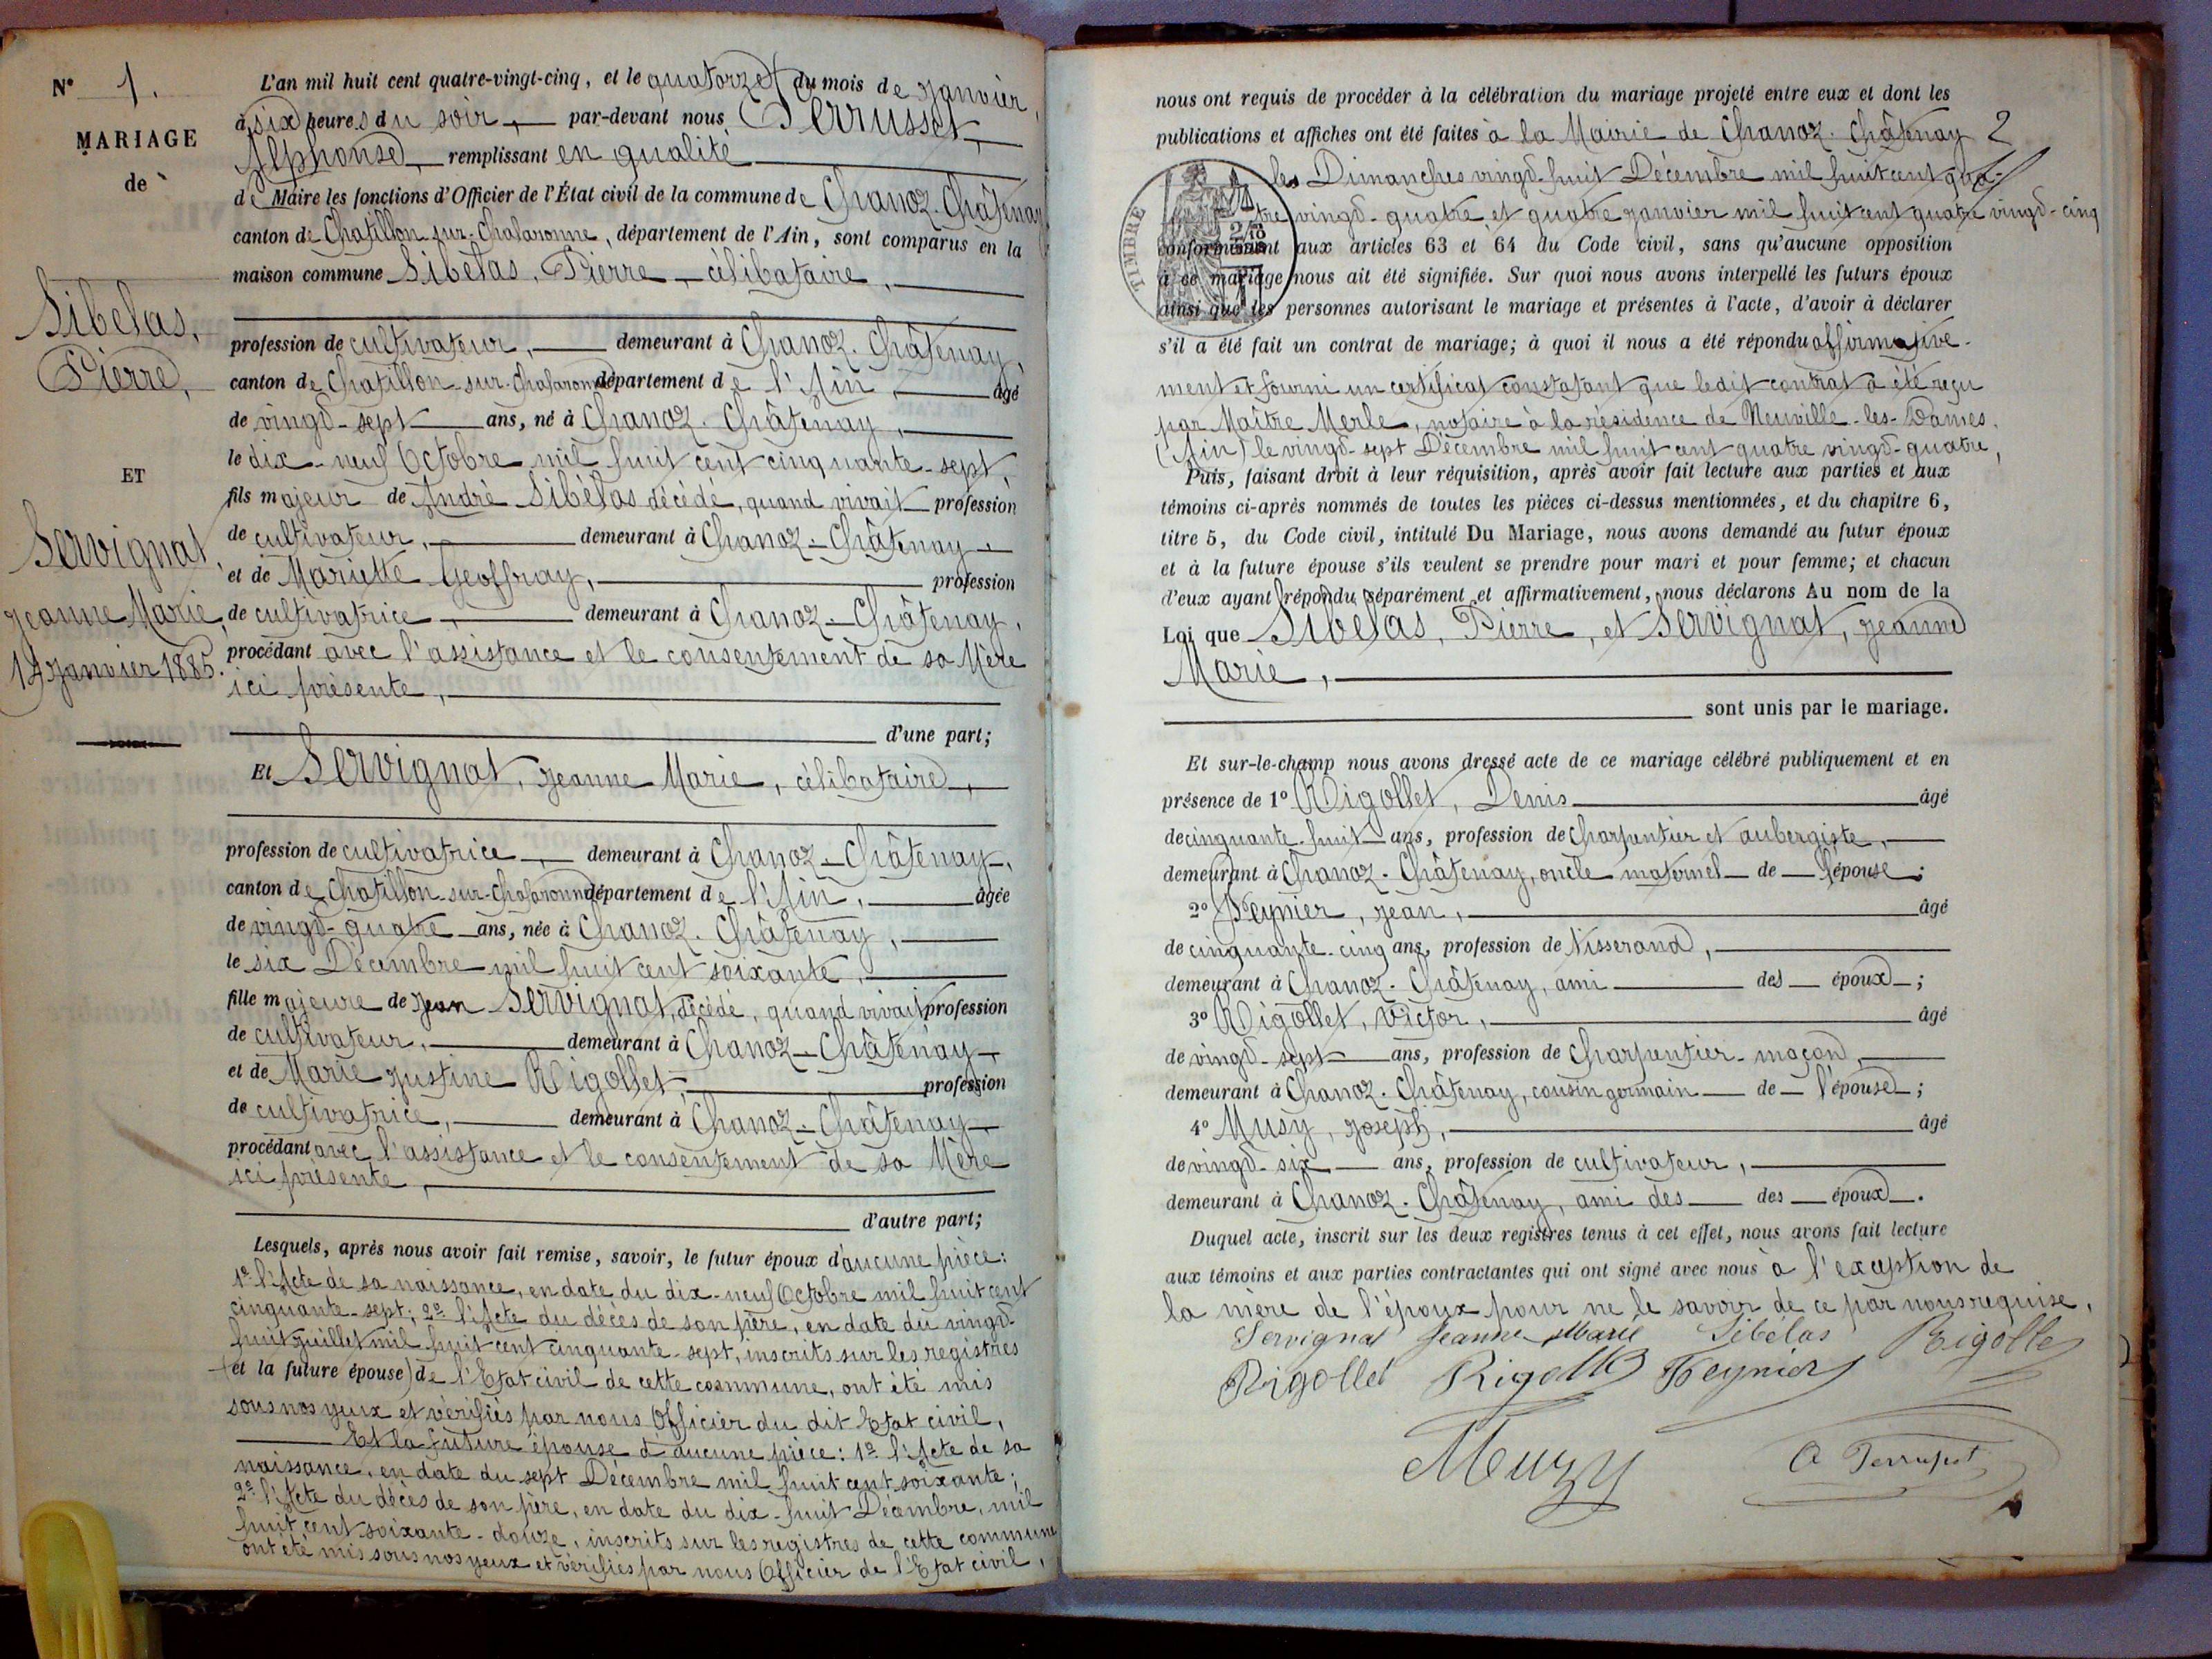 N° 1.
MARIAGE
de
Sibélas,
Pierre,
ET
Servignat,
Jeanne Marie,
14 Janvier 1885.
L'an mil huit cent quatre-vingt-cinq, et le quatorze du mois de Janvier,
à six heures du soir, par-devant nous Perrusset
Alphonse, remplissant en qualité
de Maire les fonctions d'Officier de l'État civil de la commune de Chanoz-Châtenay
canton de Chatillon-sur-Chalaronne, département de l'Ain, sont comparus en la
maison commune Sibélas, Pierre, célibataire,
profession de cultivateur, demeurant à Chanoz-Châtenay,
canton de Chatillon-sur-Chalaronne département de l'Ain, âgé
de vingt-sept ans, né à Chanoz-Châtenay,
le dix-neuf Octobre mil huit cent cinquante-sept,
fils majeur de André Sibélas décédé, quand vivait profession
de cultivateur, demeurant à Chanoz-Châtenay,
et de Mariette Geoffray, profession
de cultivatrice, demeurant à Chanoz-Châtenay,
procédant avec l'assistance et le consentement de sa Mère
ici présente,
d'une part;
Et Servignat, Jeanne Marie, célibataire,
profession de cultivatrice, demeurant à Chanoz-Châtenay,
canton de Chatillon-sur-Chalaronne département de l'Ain, âgée
de vingt-quatre ans, née à Chanoz-Châtenay,
le six Décembre mil huit cent soixante,
fille majeure de Jean Servignat, décédé, quand vivait profession
de cultivateur, demeurant à Chanoz-Châtenay,
et de Marie Justine Rigollet, profession
de cultivatrice, demeurant à Chanoz-Châtenay,
procédant avec l'assistance et le consentement de sa Mère
ici présente,
d'autre part;
Lesquels, après nous avoir fait remise, savoir, le futur époux d'aucune pièce:
1° l'Acte de sa naissance, en date du dix-neuf Octobre mil huit cent
cinquante-sept; 2° l'Acte du décès de son père, en date du vingt-
huit Juillet mil huit cent cinquante-sept, inscrits sur les registres
(et la future épouse) de l'Etat civil de cette commune, ont été mis
sous nos yeux et vérifiés par nous Officier du dit Etat civil,
Et la future épouse d'aucune pièce: 1° l'Acte de sa
naissance, en date du sept Décembre mil huit cent soixante;
2° l'Acte du décès de son père, en date du dix-huit Décembre, mil
huit cent soixante-douze, inscrits sur les registres de cette commune
ont été mis sous nos yeux et vérifiés par nous Officier de l'Etat civil,
nous ont requis de procéder à la célébration du mariage projeté entre eux et dont les
publications et affiches ont été faites à la Mairie de Chanoz-Châtenay 2
TIMBRE
les Dimanches vingt-huit Décembre mil huit cent qua-
tre vingt-quatre et quatre Janvier mil huit cent quatre vingt-cinq
conformément aux articles 63 et 64 du Code civil, sans qu'aucune opposition
à ce mariage nous ait été signifiée. Sur quoi nous avons interpellé les futurs époux
ainsi que les personnes autorisant le mariage et présentes à l'acte, d'avoir à déclarer
s'il a été fait un contrat de mariage; à quoi il nous a été répondu affirmative-
ment et fourni un certificat constatant que ledit contrat a été reçu
par Maître Merle, notaire à la résidence de Neuville-les-Dames,
(Ain) le vingt-sept Décembre mil huit cent quatre vingt-quatre,
Puis, faisant droit à leur réquisition, après avoir fait lecture aux parties et aux
témoins ci-après nommés de toutes les pièces ci-dessus mentionnées, et du chapitre 6,
titre 5, du Code civil, intitulé Du Mariage, nous avons demandé au futur époux
et à la future épouse s'ils veulent se prendre pour mari et pour femme; et chacun
d'eux ayant répondu séparément et affirmativement, nous déclarons Au nom de la
Loi que Sibélas, Pierre, et Servignat, Jeanne
Marie,
sont unis par le mariage.
Et sur-le-champ nous avons dressé acte de ce mariage célébré publiquement et en
présence de 1° Rigollet, Denis âgé
de cinquante-huit ans, profession de Charpentier et aubergiste,
demeurant à Chanoz-Châtenay, oncle maternel de l'épouse;
2° Feynier, Jean, âgé
de cinquante-cinq ans, profession de Tisserand,
demeurant à Chanoz-Châtenay, ami des époux;
3° Rigollet, Victor, âgé
de vingt-sept ans, profession de Charpentier-maçon,
demeurant à Chanoz-Châtenay, cousin germain de l'épouse;
4° Musy, Joseph, âgé
de vingt-six ans, profession de cultivateur,
demeurant à Chanoz-Châtenay, ami des des époux.
Duquel acte, inscrit sur les deux registres tenus à cet effet, nous avons fait lecture
aux témoins et aux parties contractantes qui ont signé avec nous à l'exception de
la mère de l'époux pour ne le savoir de ce par nous requise.
Servignat Jeanne Marie Sibélas Rigollet
Rigollet Rigollet Feynier
Meuzy A Perrusset